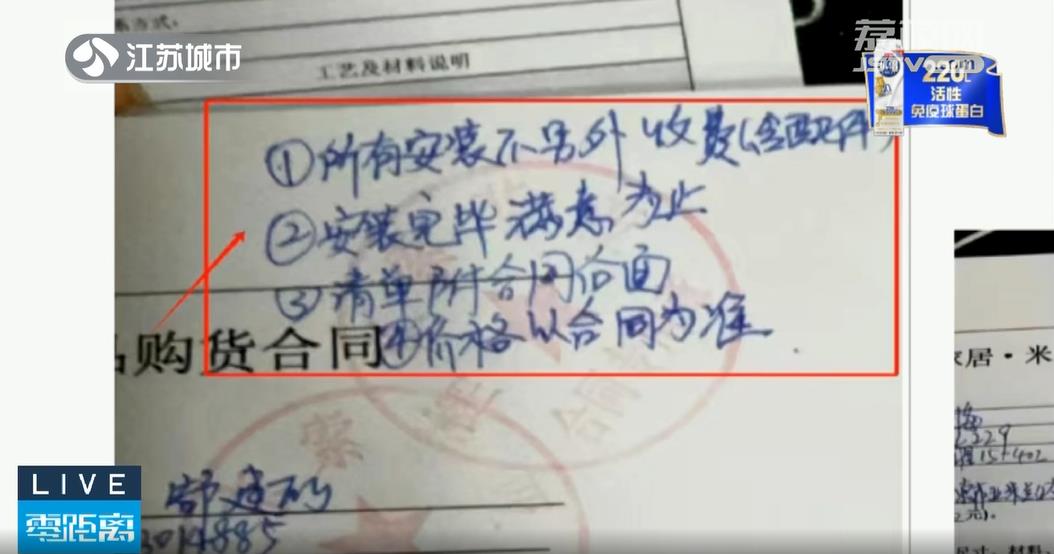 系方式:
工艺及材料说明
江苏城市
荔枝网
JSTV.COM
220
活性
免疫球蛋白
①所有安装不另外收费(含配件)
②安装完毕满意为止
③清单附合同后面
④价格以合同为准
品购货合同
索
合同专
家居·米
2229
15-402
LIVE
零距离
3014885